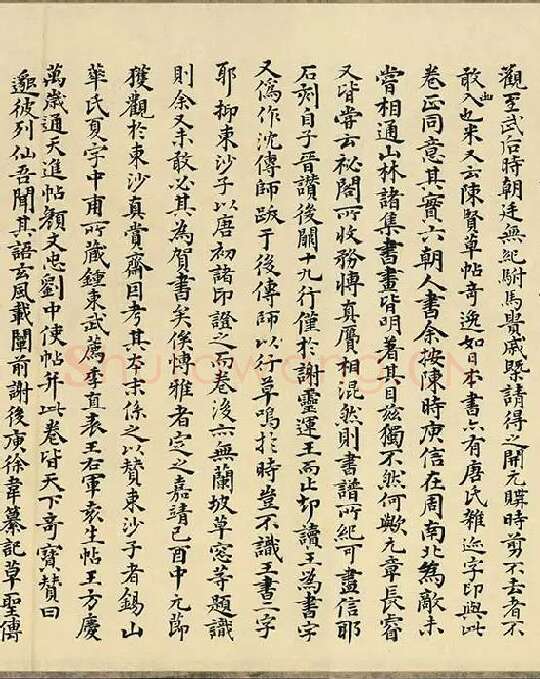 觀至武后時朝廷無紀駙馬貴戚槩請得之開元購時剪不去者不
敢入也米又云陳賢草帖奇逸如日本書亦有唐氏雜迹字印與此
卷正同意其實六朝人書余按陳時庾信在周南北為敵未
嘗相通山林諸集書畫皆明著其目茲獨不然何歟元章長睿
又皆嘗云祕閣所收務博真贗相混然則書譜所紀可盡信耶
石刻自子晉讚後闕十九行僅於謝靈運王而止却讀王為書字
又偽作沈傳師跋于後傳師以行草鳴於時豈不識王書二字
耶抑東沙子以唐初諸印證之而卷後亦無蘭坡草窓等題識
則余又未敢必其為賀書矣俟博雅者定之嘉靖己酉中元節
獲觀於東沙真賞齋因考其本末係之以贊東沙子者錫山
華氏夏字中甫所藏鍾東武薦季直表王右軍袁生帖王方慶
萬歲通天進帖顏文忠劉中使帖并此卷皆天下奇寶贊曰
邈彼列仙吾聞其語玄風載闡前謝後庾徐韋纂記草聖傳